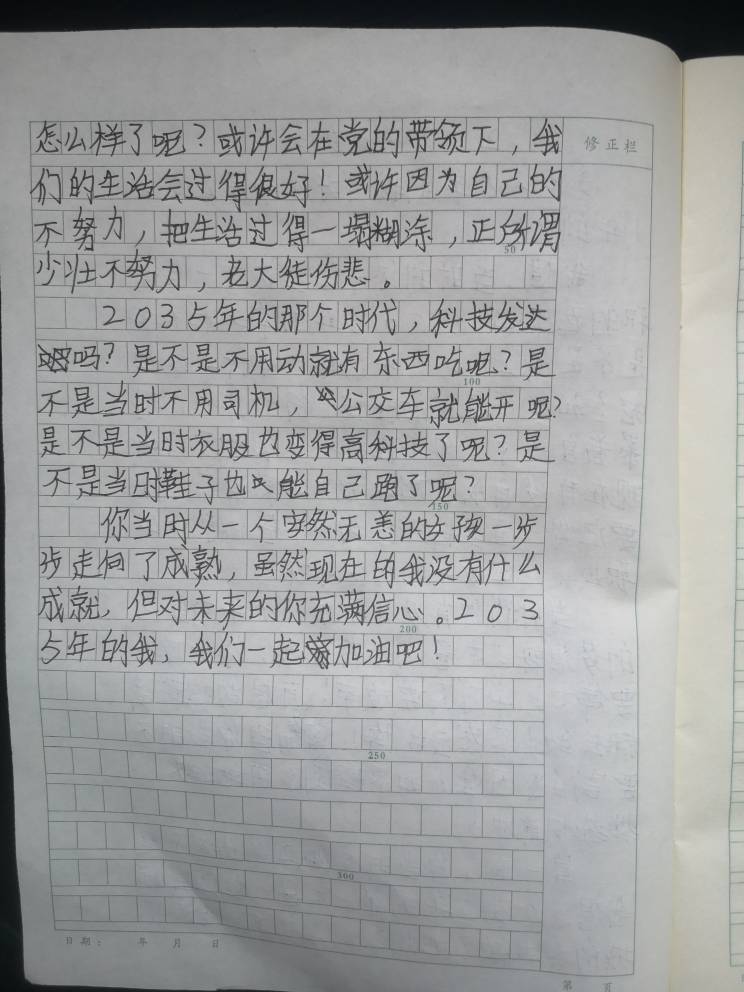 怎么样了呢？或许会在党的带领下，我
修正栏
们的生活会过得很好！或许因为自己的
不努力，把生活过得一塌糊涂，正所谓
50
少壮不努力，老大徒伤悲。
2035年的那个时代，科技发达
吗？是不是不用动就有东西吃呢？是
100
不是当时不用司机，公交车就能开呢？
是不是当时衣服也变得高科技了呢？是
不是当时鞋子也能自己跑了呢？
150
你当时从一个安然无恙的女孩一步
步走向了成熟，虽然现在的我没有什么
成就，但对未来的你充满信心。203
200
5年的我，我们一起加油吧！
250
300
日期： 年 月 日
第 页